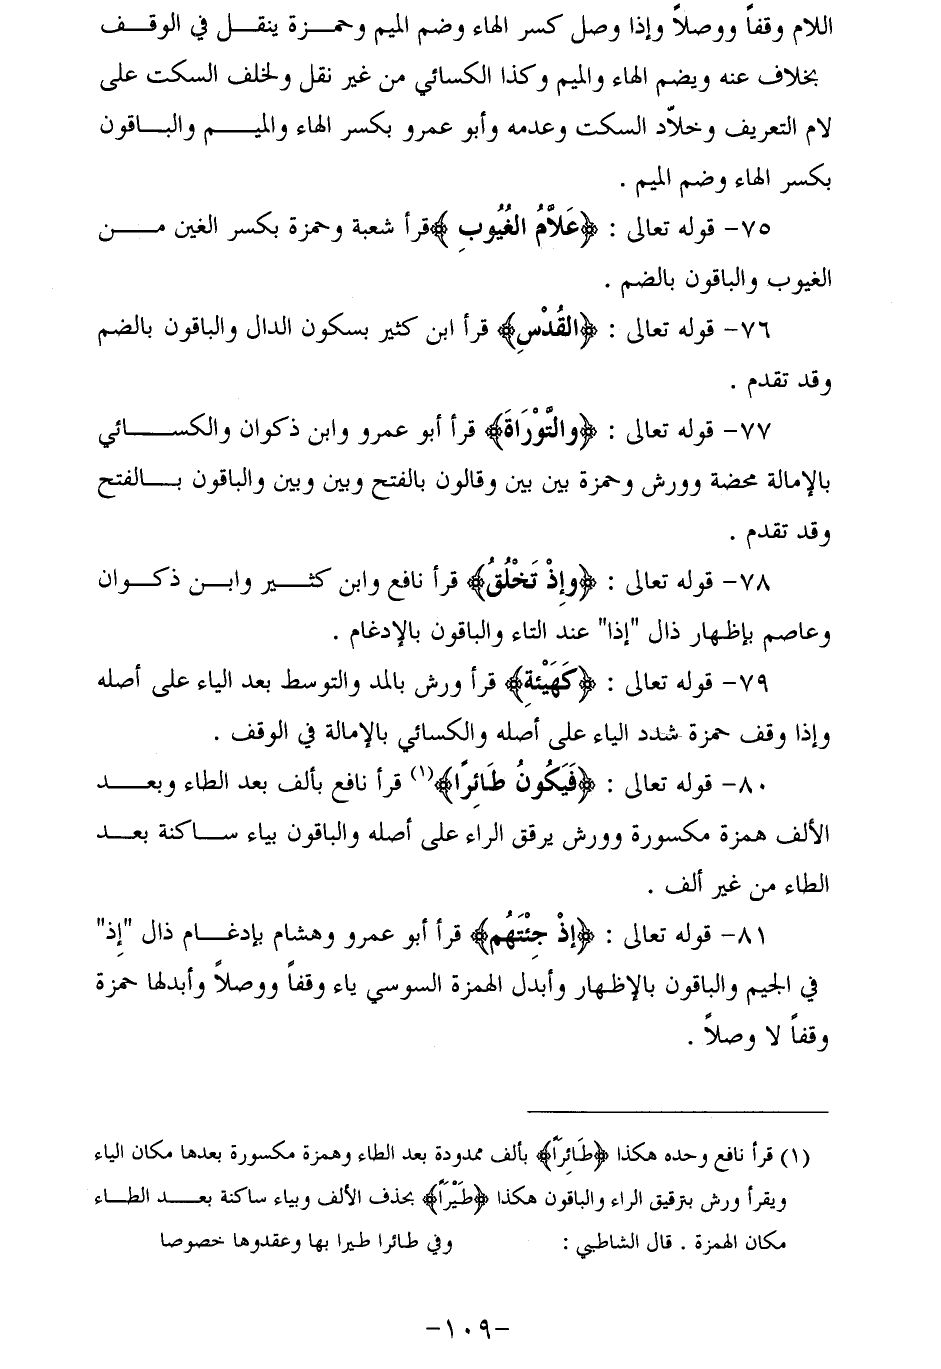 اللام وقفاً ووصلاً وإذا وصل كسر الهاء وضم الميم وحمزة ينقل في الوقف
بخلاف عنه ويضم الهاء والميم وكذا الكسائي من غير نقل ولخلف السكت على
لام التعريف وخلاّد السكت وعدمه وأبو عمرو بكسر الهاء والميم والباقون
بكسر الهاء وضم الميم .
٧٥- قوله تعالى : ﴿عَلاَّمُ الغُيُوبِ ﴾قرأ شعبة وحمزة بكسر الغين من
الغيوب والباقون بالضم .
٧٦- قوله تعالى : ﴿القُدْسِ﴾ قرأ ابن كثير بسكون الدال والباقون بالضم
وقد تقدم .
٧٧- قوله تعالى : ﴿والتَّوْرَاةَ﴾ قرأ أبو عمرو وابن ذكوان والكسائي
بالإمالة محضة وورش وحمزة بين بين وقالون بالفتح وبين وبين والباقون بالفتح
وقد تقدم .
٧٨- قوله تعالى : ﴿وإِذْ تَخْلُقُ﴾ قرأ نافع وابن كثير وابن ذكوان
وعاصم بإظهار ذال "إذا" عند التاء والباقون بالإدغام .
٧٩- قوله تعالى : ﴿كَهَيْئَةِ﴾ قرأ ورش بالمد والتوسط بعد الياء على أصله
وإذا وقف حمزة شدد الياء على أصله والكسائي بالإمالة في الوقف .
٨٠- قوله تعالى : ﴿فَيَكُونُ طَائِرًا﴾(١) قرأ نافع بألف بعد الطاء وبعد
الألف همزة مكسورة وورش يرقق الراء على أصله والباقون بياء ساكنة بعد
الطاء من غير ألف .
٨١- قوله تعالى : ﴿إذْ جِئْتَهُم﴾ قرأ أبو عمرو وهشام بإدغام ذال "إِذ"
في الجيم والباقون بالإظهار وأبدل الهمزة السوسي ياء وقفاً ووصلاً وأبدلها حمزة
وقفاً لا وصلاً .
(١) قرأ نافع وحده هكذا ﴿طَائِراً﴾ بألف ممدودة بعد الطاء وهمزة مكسورة بعدها مكان الياء
ويقرأ ورش بترقيق الراء والباقون هكذا ﴿طَيْراً﴾ بحذف الألف وبياء ساكنة بعد الطاء
مكان الهمزة . قال الشاطبي : وفي طائرا طيرا بها وعقدوها خصوصا
-١٠٩-